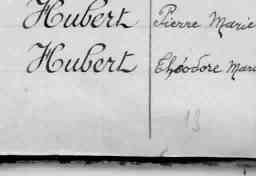 Hubert Pierre Marie
Hubert Théodore Marie
13